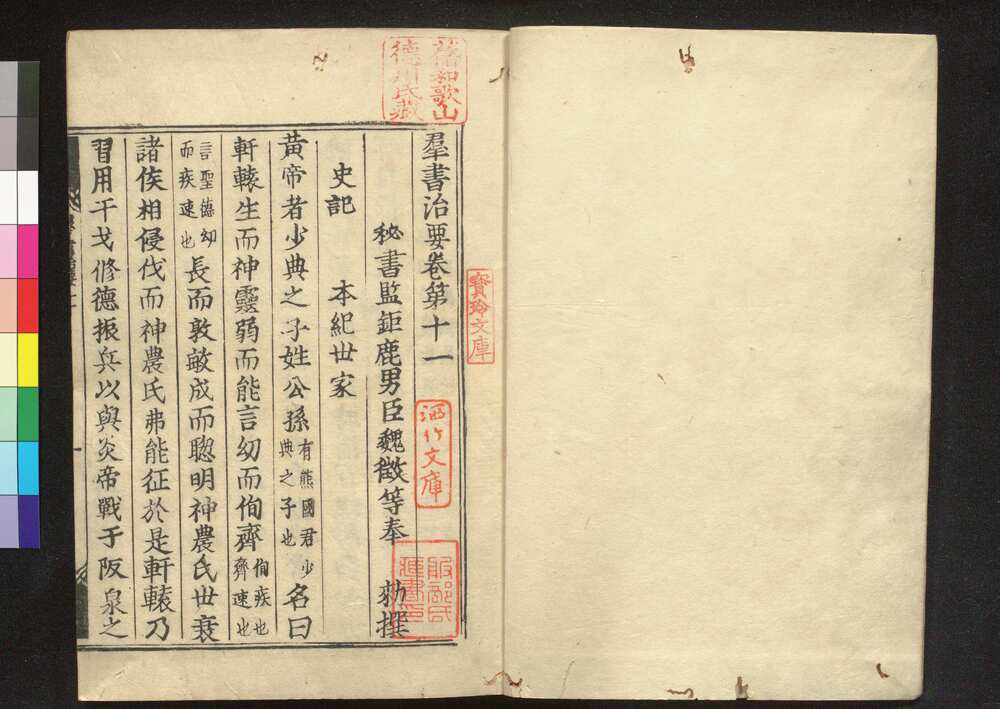 羣書治要卷第十一
秘書監鉅鹿男臣魏徵等奉 勑撰
史記 本紀世家
黃帝者少典之子姓公孫有熊國君少典之子也名曰
軒轅生而神靈弱而能言幼而侚齊侚疾也齊速也
言聖德幼而疾速也長而敦敏成而聰明神農氏世衰
諸侯相侵伐而神農氏弗能征於是軒轅乃
習用干戈修德振兵以與炎帝戰于阪泉之
舊和歌山
德川氏藏
寶玲文庫
洒竹文庫
服部氏